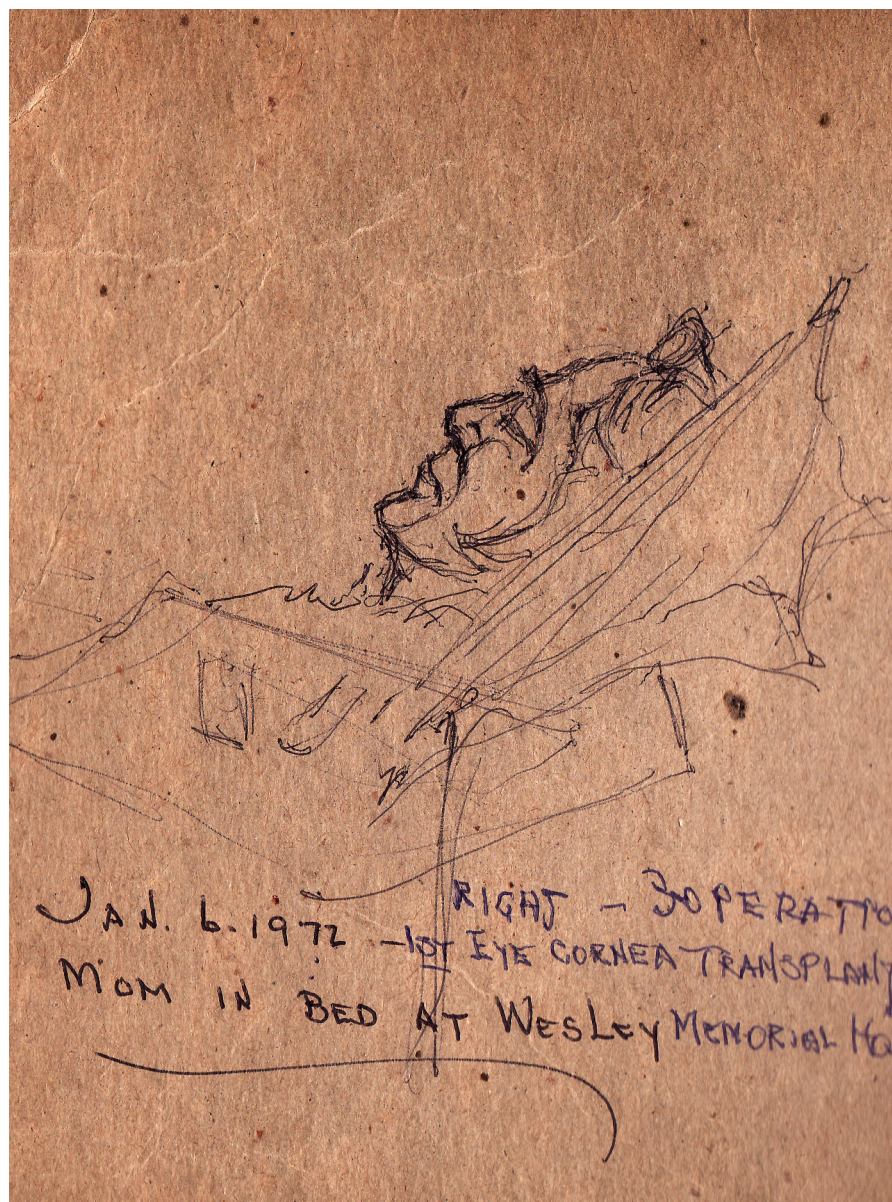 RIGHT - 3 OPERATIO
JAN. 6. 1972 - 1ST EYE CORNEA TRANSPLANT
MOM IN BED AT WESLEY MEMORIAL HO